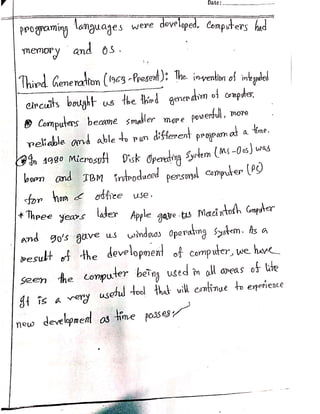 Date:
programing languages were developed. Computers had
memory and OS.
Third Generation (1963-Present): The invention of integrated
circuits bought us the third generation of computer.
Computers became smaller more powerfull, more
reliable and able to run different program at a time.
In 1980 Microsoft Disk Operating System (MS-Dos) was
born and IBM introduced personal computer (PC)
for home & office use.
* Three years later Apple gave us Macintosh Computer
and 90's gave us windows operating system. As a
result of the development of computer, we have
seen the computer being used in all areas of life
It is a very useful tool that will continue to experience
new development as time passes.